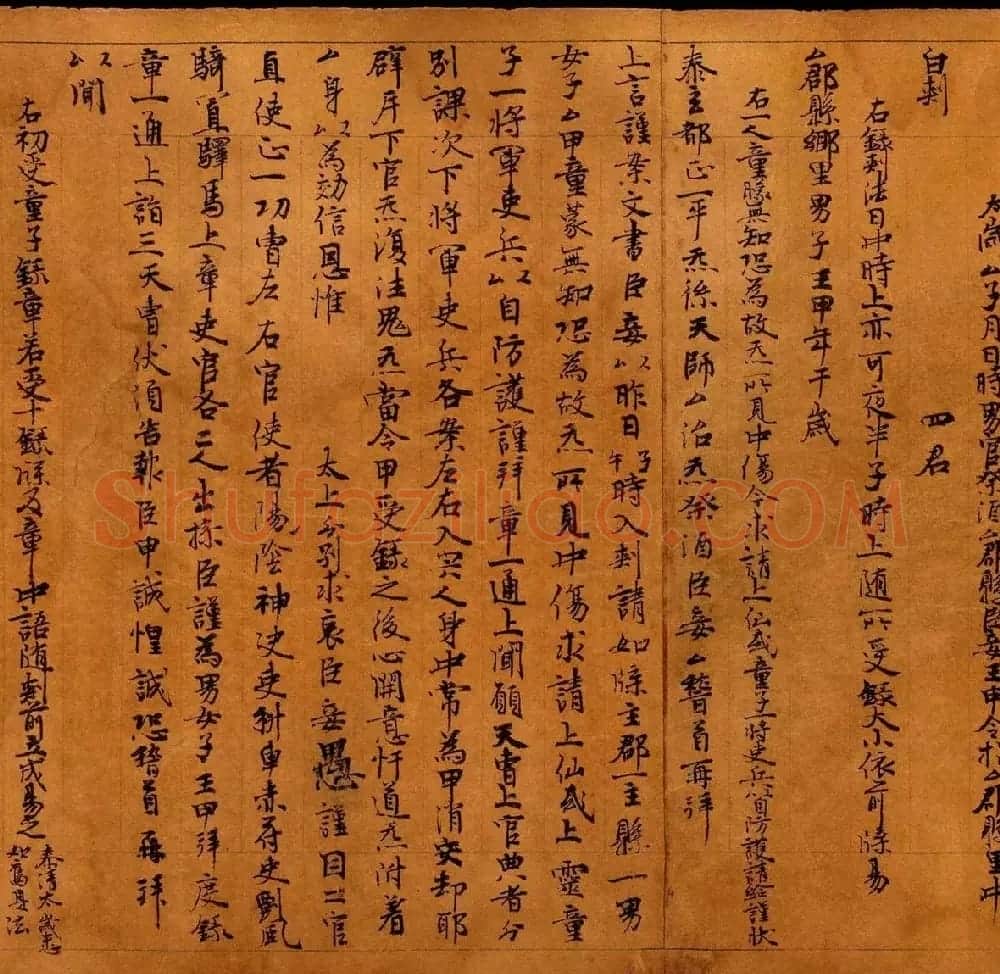 太歲厶子月日時男官祭酒厶郡縣臣妾王甲今於厶郡縣里中
四君
白刺
右錄刺法日中時上亦可夜半子時上随所受錄大小依前牒易
厶郡縣鄉里男子王甲年干歲
右一人童矇無知恐為故炁所見中傷今求請上仙或童子一將吏兵以自防護請給謹狀
泰主都正一平炁係天師厶治炁祭酒臣妾厶稽首再拜
上言謹案文書臣妾以昨日子午時入刺請如牒主郡一主縣一男
女子厶甲童蒙無知恐為故炁所見中傷求請上仙或上靈童
子一將軍吏兵以自防護謹拜章一通上聞願天曹上官典者分
別課次下將軍吏兵各案左右入冥人身中常為甲消灾却耶
辟斥下官炁復注鬼炁當令甲受錄之後心開意忏道炁附着
厶身以為効信恩惟 太上分別求哀臣妾愚謹因二官
直使正一功曹左右官使者陽陰神决吏科車赤苻吏對風
騎置驛馬上章吏官各二人出操臣謹為男女子王甲拜度錄
章一通上詣三天曹伏須告報臣甲誠惶誠恐稽首再拜
以聞
右初受童子錄章若受十錄牒及章中語随刺前五戌易之
泰清太歲
如舊是法
Shufaziliao.COM